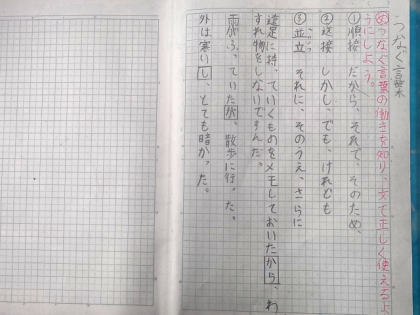 つなぐ言葉
めつなぐ言葉の働きを知り、文で正しく使えるよ
うにしよう。
①順接 だから、それで、そのため、
②逆接 しかし、でも、けれども
③並立 それに、そのうえ、さらに
遠足に持っていくものをメモしておいたから、わ
すれ物をしないですんだ。
雨がふっていたが、散歩に行った。
外は寒いし、とても暗かった。